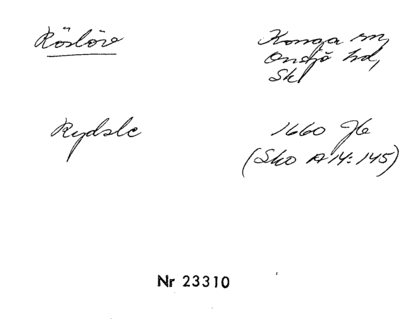 Röslöv
Konga sn,
Onsjö hd,
Sk
Rydsle
1660 Jb
(Sko A14:145)
Nr 23310